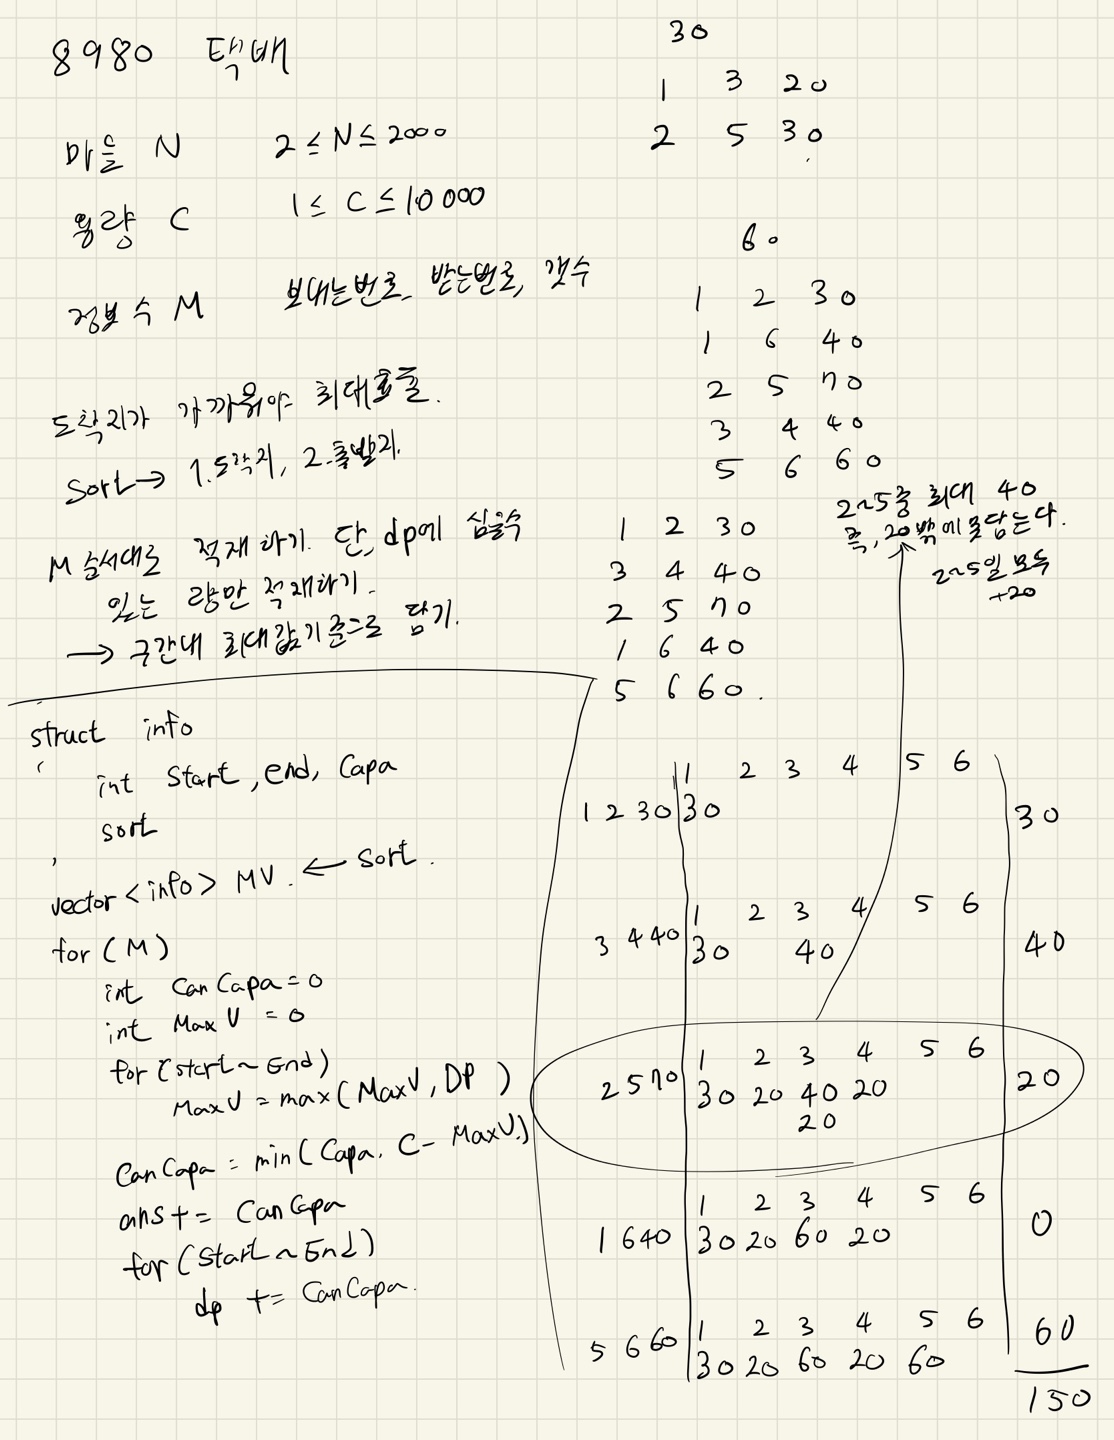 8980 택배
마을 N 2 ≤ N ≤ 2000
용량 C 1 ≤ C ≤ 10000
정보 수 M 보내는번호, 받는번호, 갯수
도착지가 가까워야 최대효율.
Sort → 1.도착지, 2.출발지.
M 순서대로 적재 하기. 단, dp에 실을수
있는 량만 적재하기.
→ 구간내 최대값 기준으로 담기.
struct info
int Start, end, Capa
sort
vector<info> MV. ← Sort.
for (M)
int CanCapa = 0
int MaxV = 0
for (start ~ End)
MaxV = max(MaxV, DP)
CanCapa = min(Capa, C - MaxV)
ans += CanCapa
for (Start ~ End)
dp += CanCapa.
30
1 3 20
2 5 30
60
1 2 30
1 6 40
2 5 70
3 4 40
5 6 60
2~5중 최대 40
즉, 20밖에 못담는다.
2~5일 모두
+20
1 2 30
3 4 40
2 5 70
1 6 40
5 6 60.
1 2 3 4 5 6
1 2 30 30 30
1 2 3 4 5 6
3 4 40 30 40 40
1 2 3 4 5 6
2 5 70 30 20 40 20 20
20
1 2 3 4 5 6
1 6 40 30 20 60 20 0
1 2 3 4 5 6
5 6 60 30 20 60 20 60 60
150